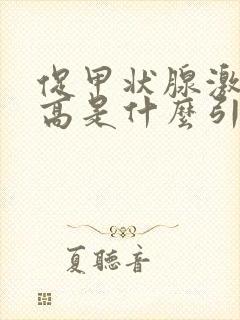 促甲状腺激
高是什麼引
夏聽音